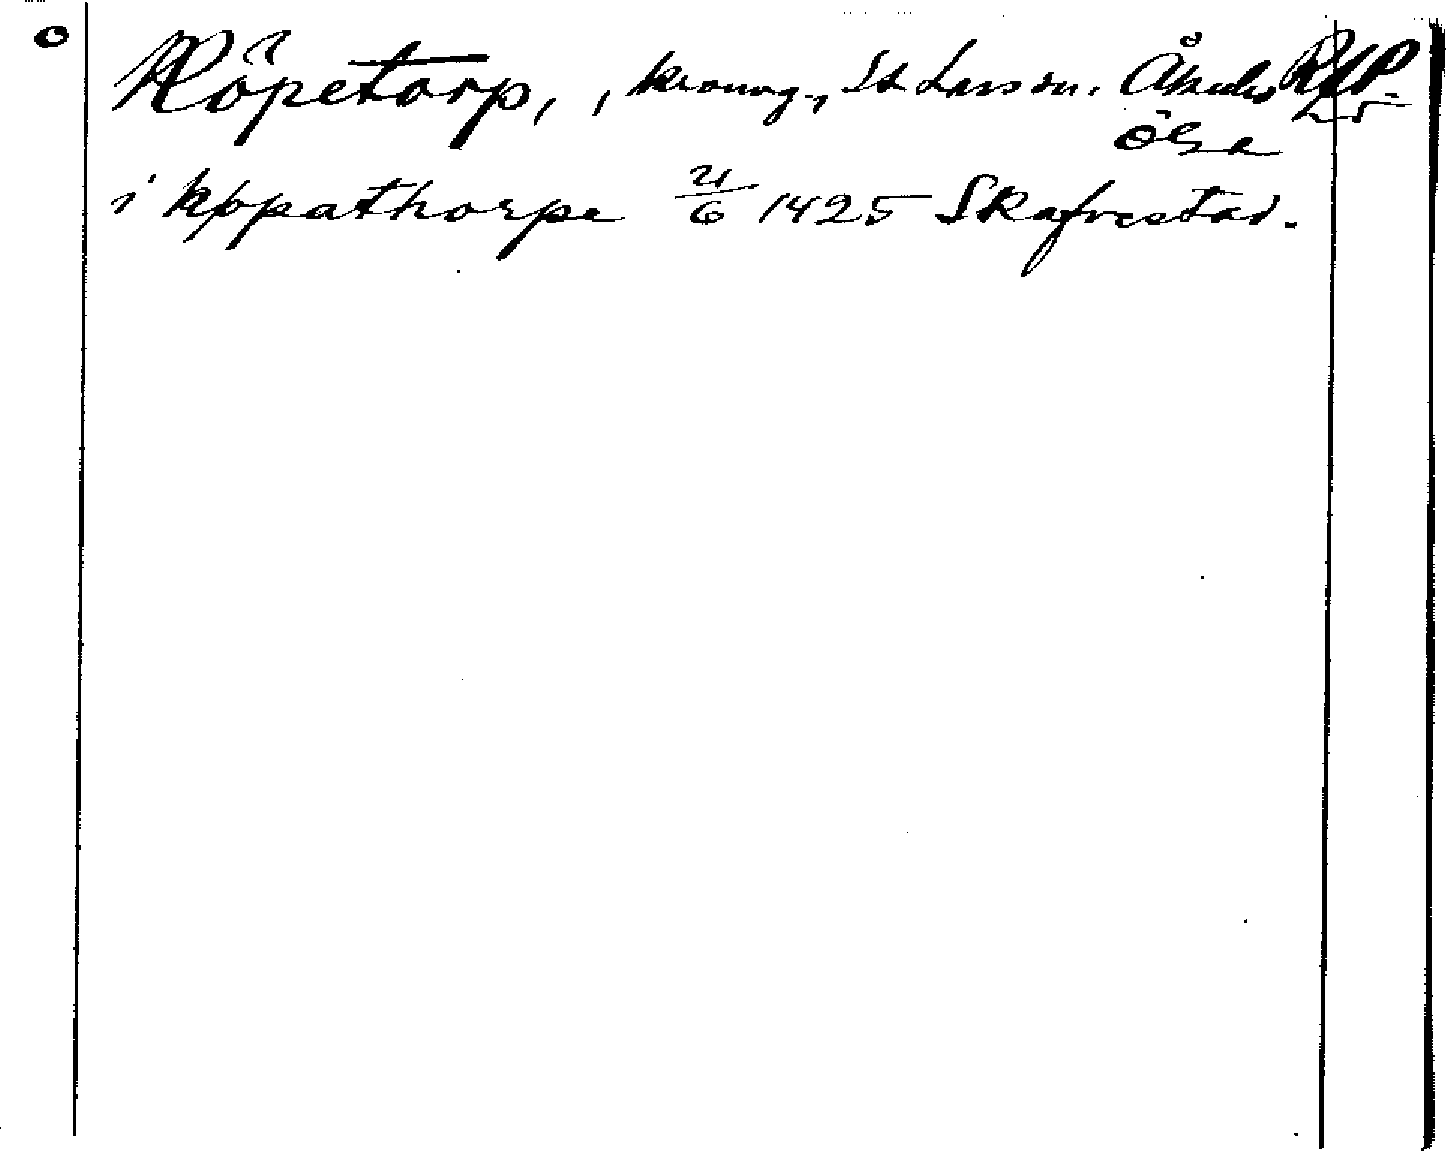 Köpetorp, , kronog., St Lars sn. Åkerbo
ÖGa
i køpathorpe 21/6 1425 Skafvestad.